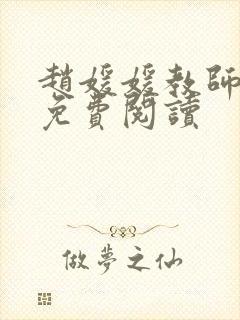 趙媛媛教師
免費閱讀
做夢之仙